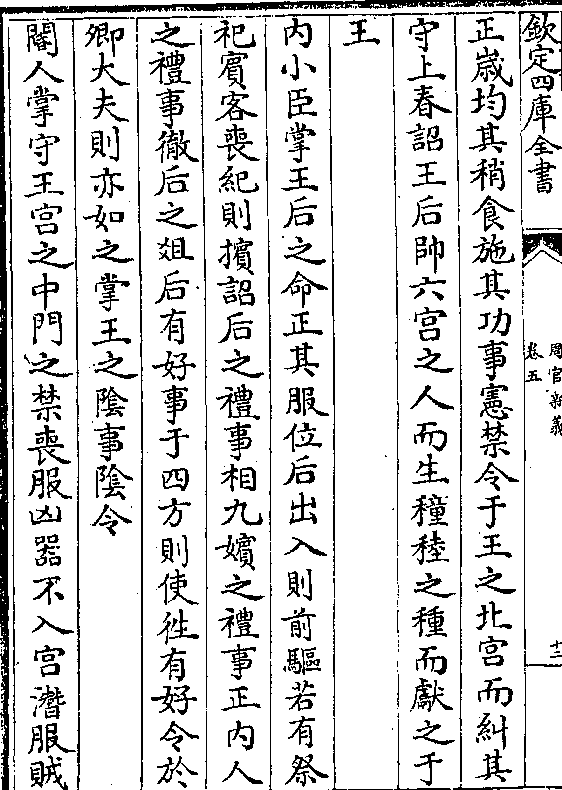 欽定四庫全書
周官新義
卷五
十三
正歲均其稍食施其功事憲禁令于王之北宮而糾其
守上春詔王后帥六宮之人而生穜稑之種而獻之于
王
内小臣掌王后之命正其服位后出入則前驅若有祭
祀賓客喪紀則擯詔后之禮事相九嬪之禮事正内人
之禮事徹后之俎后有好事于四方則使徃有好令於
卿大夫則亦如之掌王之隂事隂令
閽人掌守王宮之中門之禁喪服凶器不入宮潛服賊